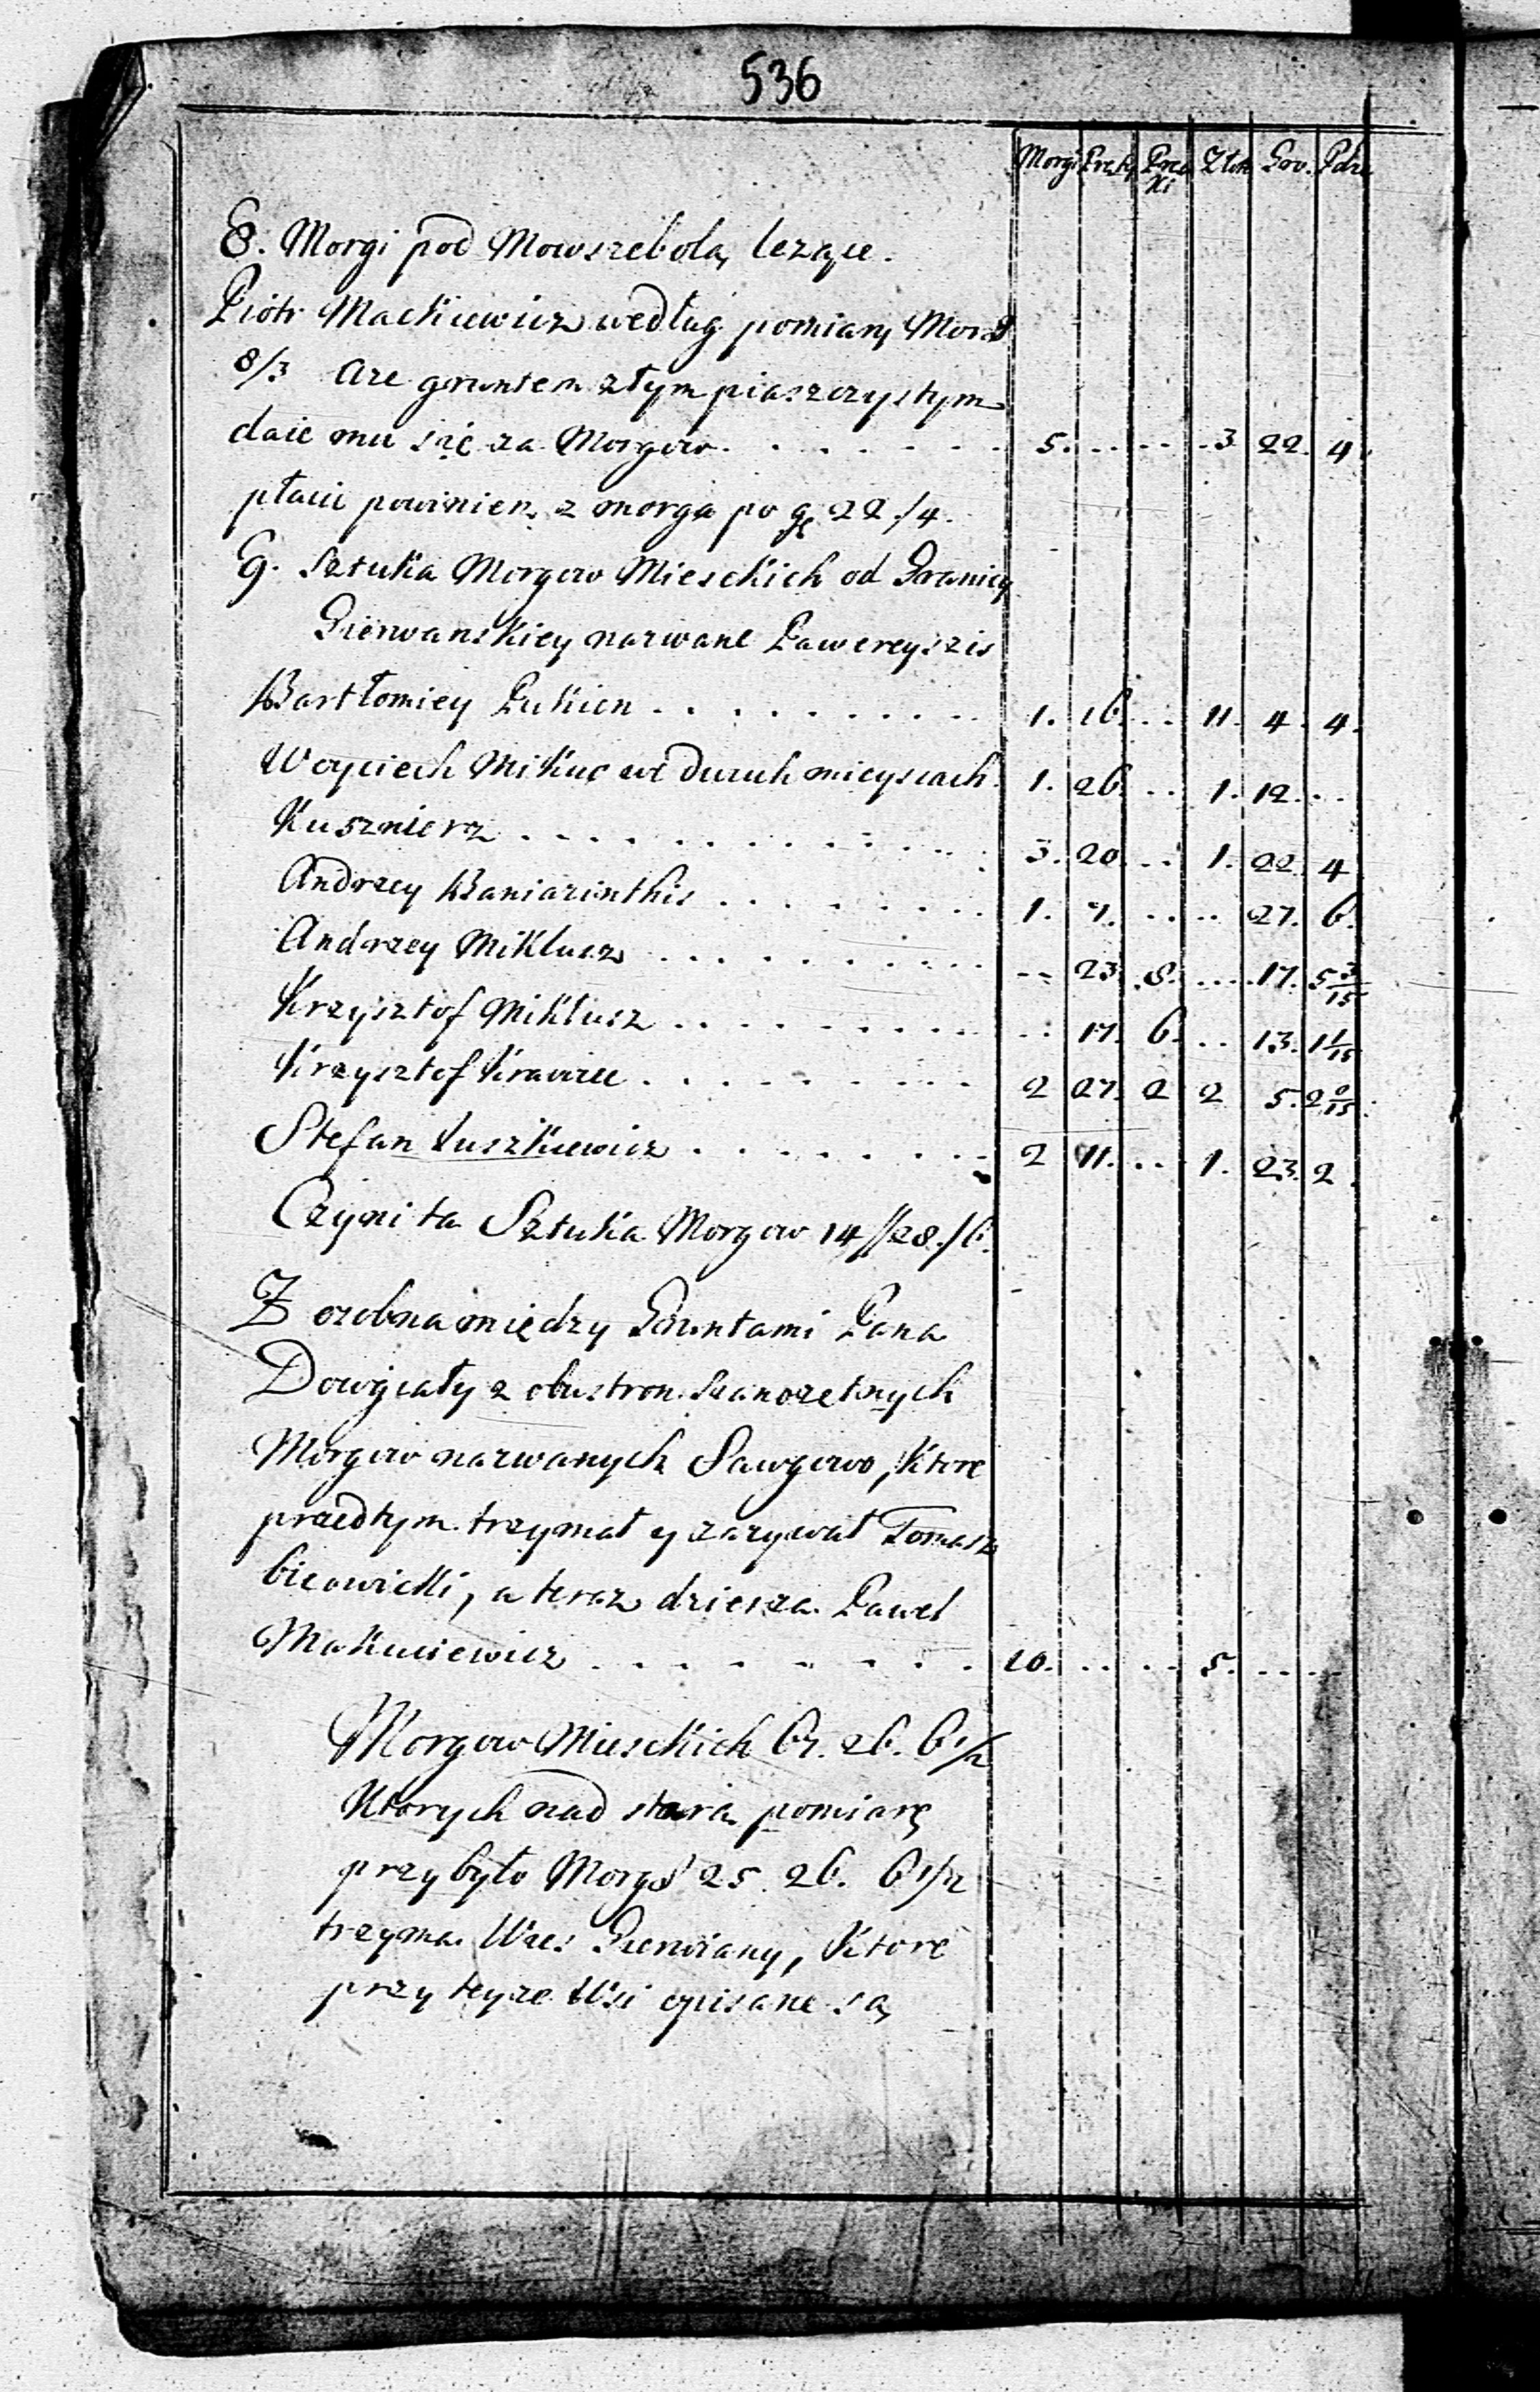 536
Morgi Pręty Prę Złot Gro. Pdzi
ki
8. Morgi pod Mowszebolą leżące.
Piotr Mackiewicz według pomiary Morg
8/3 Aze gruntem złym piaszczystym
daie mu się za Morgow . . . . . . . 5. .. .. 3 22. 4.
płacić powinien z morga po gr 22./4.
9. Sztuka Morgow Mieskich od Granicy
Gierwanskiey nazwane Pawereyszis
Bartłomiey Lukien . . . . . . . . . 1. 16. .. 11. 4. 4.
Woyciech Mikuc we dwuch mieyscach. 1. 26. .. 1. 12. ..
Kusznierz . . . . . . . . . . 3. 20. .. 1. 22. 4
Andrzey Baniazinthis . . . . . . . 1. 7. .. .. 27. 6.
Andrzey Miklusz . . . . . . . . . -- 23. 8. .. 17. 5 3/15
Krzysztof Miklusz . . . . . . . . .. 17. 6. .. 13. 1 1/15
Krzysztof Krawiec . . . . . . . . 2 27. 2 2 5. 2 2/15.
Stefan Juszkiewicz . . . . . . . . 2 11. .. 1. 23. 2.
Czyni ta Sztuka Morgow 14//28./6.
Z osobna między Gruntami Pana
Dowgiały z obustron
Morgow nazwanych Sawgowo, ktore
przedtym trzymał y zazywał Tomasz
a teraz dziesza Paweł
Makuciewicz . . . . . . . . 10. .. .. 5. .. ..
Morgow Mieskich 67. 26. 6 1/2
Ktorych nad starą pomiarę
przybyło Morg 25. 26. 6 1/2
trzyma Wies Gierwiany, Ktore
przy teyze Wsi opisane są